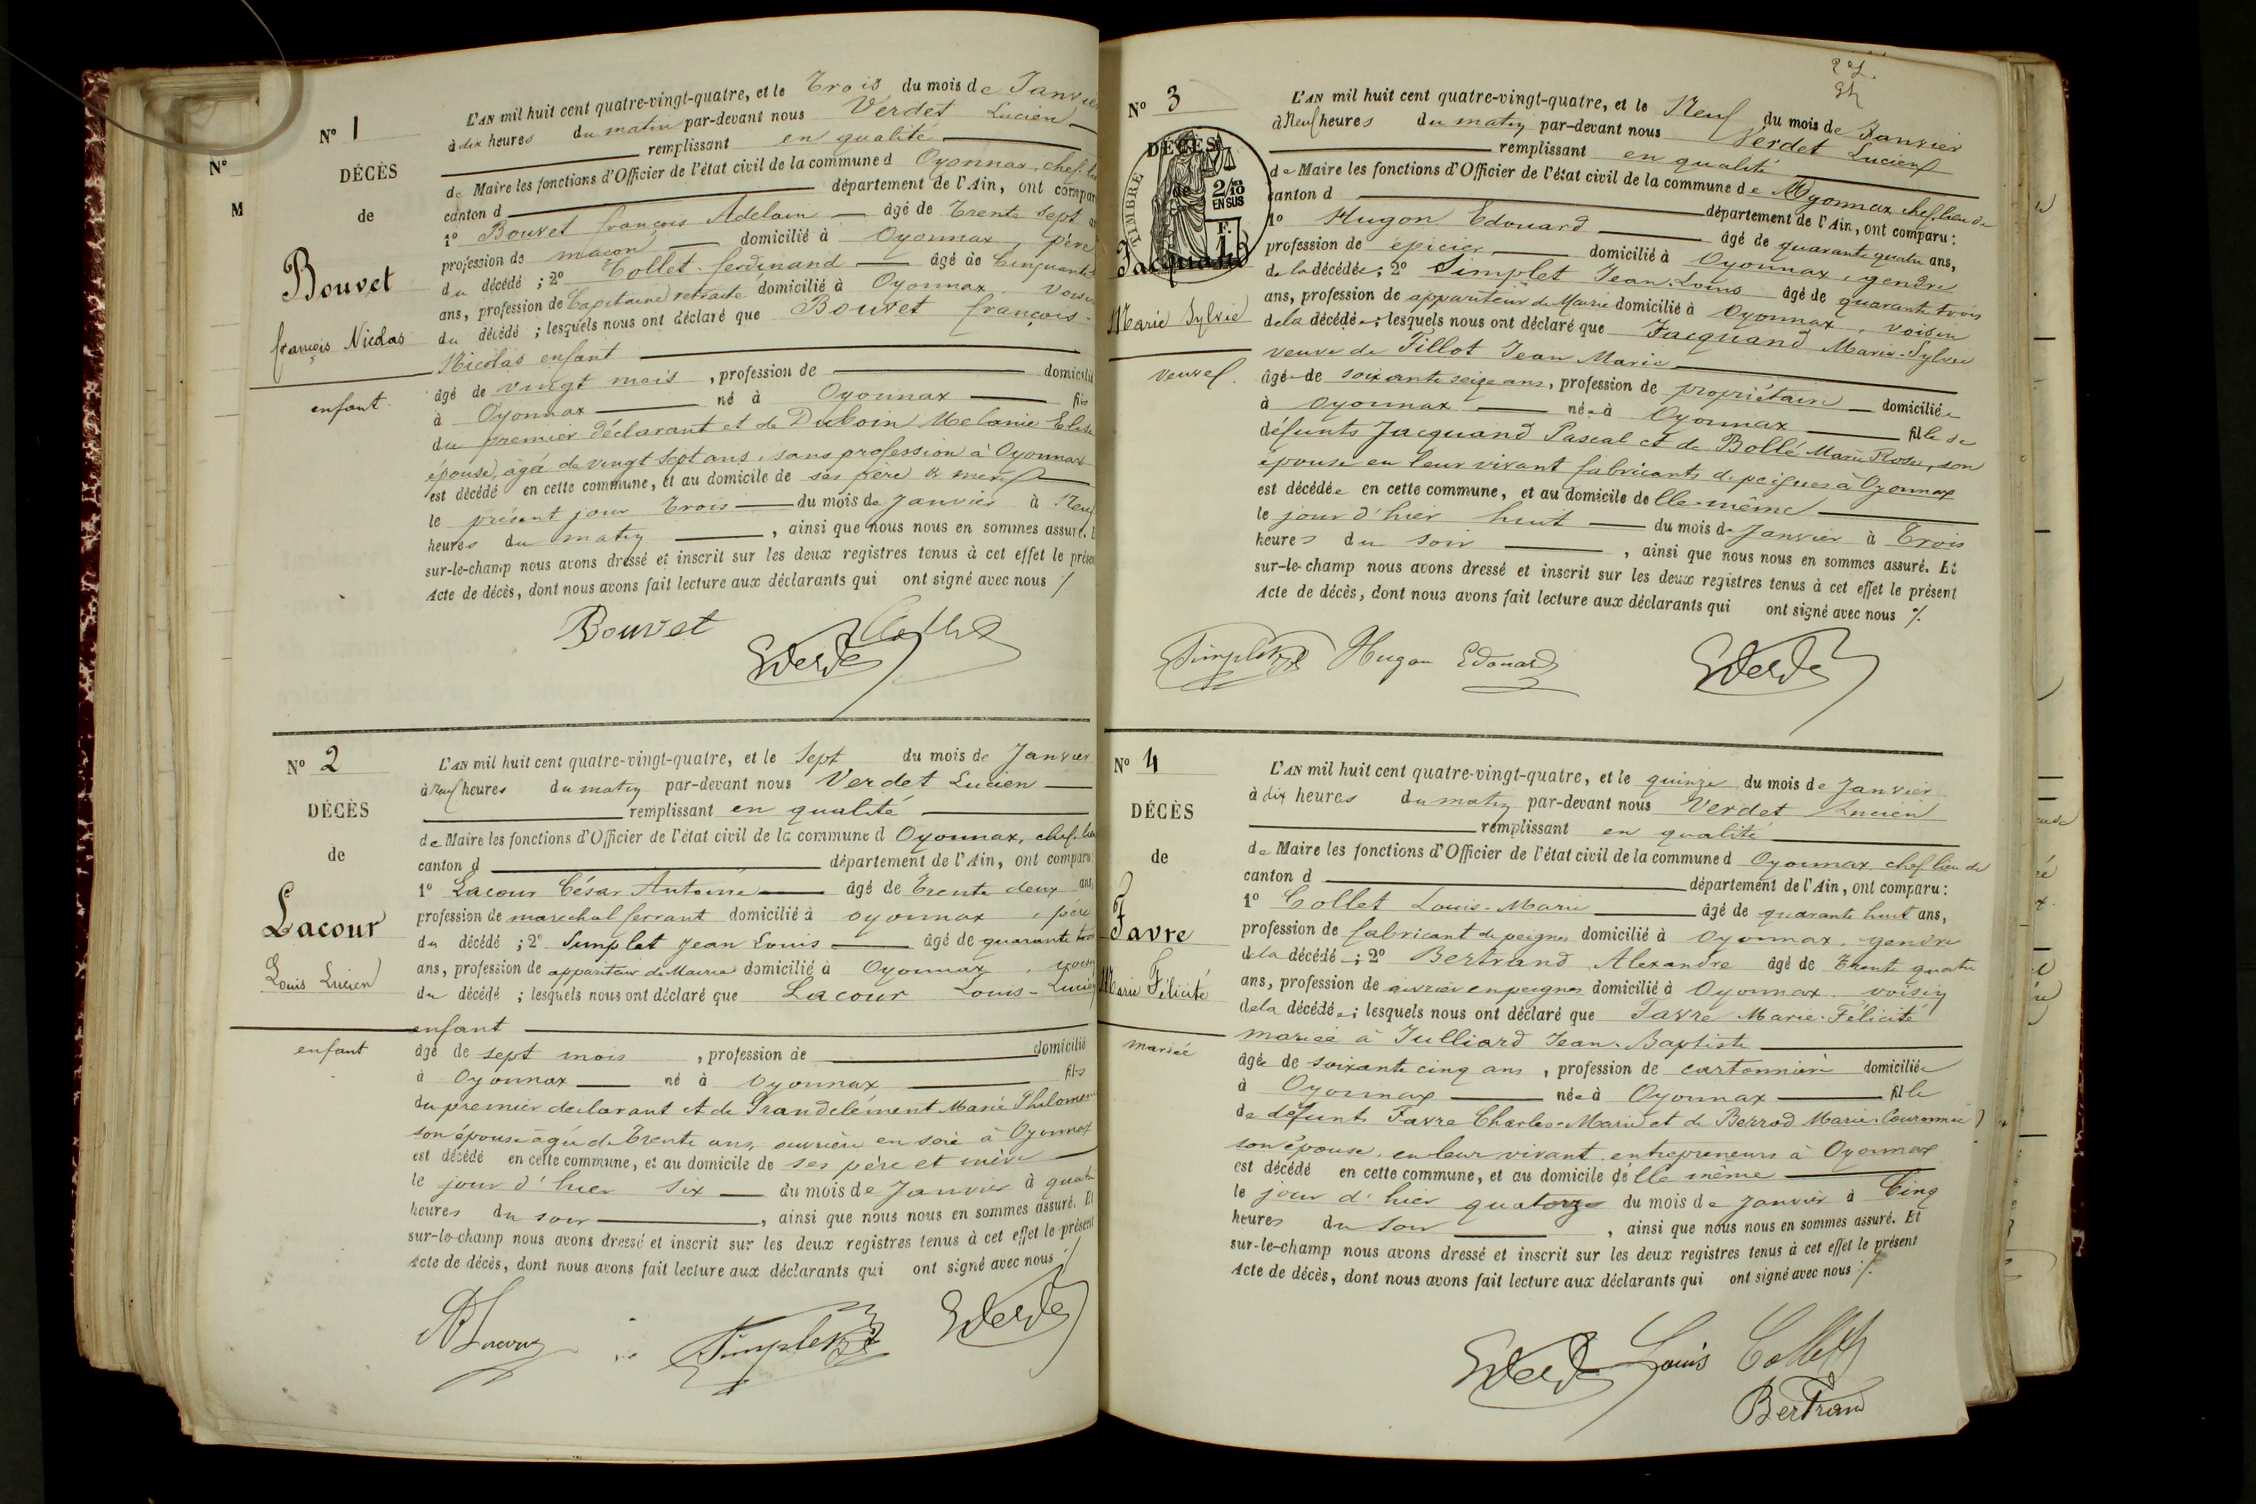 N° 1
DÉCÈS
de
Bouvet
françois Nicolas
enfant
L'AN mil huit cent quatre-vingt-quatre, et le Trois du mois de Janvier
à dix heures du matin par-devant nous Verdet Lucien
remplissant en qualité
de Maire les fonctions d'Officier de l'état civil de la commune d Oyonnax, chef-lieu
canton d département de l'Ain, ont compar
1° Bouvet françois Adelain âgé de Trente Sept
profession de maçon domicilié à Oyonnax, père
du décédé ; 2° Collet ferdinand âgé de Cinquante
ans, profession de Capitaine retraité domicilié à Oyonnax voisin
du décédé ; lesquels nous ont déclaré que Bouvet françois-
Nicolas enfant
âgé de vingt mois , profession de domicilié
à Oyonnax né à Oyonnax fils
du premier déclarant et de Duboin Melanie
épouse, âgée de vingt sept ans, sans profession à Oyonnax
est décédé en cette commune, et au domicile de ses père & mère
le présent jour Trois du mois de Janvier à Neuf
heures du matin , ainsi que nous nous en sommes assuré. E
sur-le-champ nous avons dressé et inscrit sur les deux registres tenus à cet effet le présen
Acte de décès, dont nous avons fait lecture aux déclarants qui ont signé avec nous
Bouvet Collet
Verdet
N° 2
DÉCÈS
de
Lacour
Louis Lucien
enfant
L'AN mil huit cent quatre-vingt-quatre, et le Sept du mois de Janvier
à Neuf heures du matin par-devant nous Verdet Lucien
remplissant en qualité
de Maire les fonctions d'Officier de l'état civil de la commune d Oyonnax, chef-lieu
canton d département de l'Ain, ont comparu:
1° Lacour César Antoine âgé de Trente deux ans,
profession de marechal ferrant domicilié à oyonnax, père
du décédé ; 2° Simplet Jean Louis âgé de quarante trois
ans, profession de appariteur de Mairie domicilié à Oyonnax, voisin
du décédé ; lesquels nous ont déclaré que Lacour Louis-Lucien
enfant
âgé de sept mois , profession de domicilié
à Oyonnax né à Oyonnax fils
du premier déclarant et de Grandclément Marie Philomène
son épouse âgée de Trente ans, ouvrière en soie à Oyonnax
est décédé en cette commune, et au domicile de ses père et mère
le jour d'hier six du mois de Janvier à quatre
heures du soir , ainsi que nous nous en sommes assuré. Et
sur-le-champ nous avons dressé et inscrit sur les deux registres tenus à cet effet le présent
Acte de décès, dont nous avons fait lecture aux déclarants qui ont signé avec nous
Lacour Simplet Verdet
N° 3
DÉCÈS
de
TIMBRE
2/10 EN SUS
F.
Jacquand
Marie Sylvie
veuve
L'AN mil huit cent quatre-vingt-quatre, et le Neuf du mois de Janvier
à Neuf heures du matin par-devant nous Verdet Lucien
remplissant en qualité
de Maire les fonctions d'Officier de l'état civil de la commune de Oyonnax chef-lieu de
canton d département de l'Ain, ont comparu:
1° Hugon Edouard âgé de quarante quatre ans,
profession de épicier domicilié à Oyonnax, gendre
de la décédée; 2° Simplet Jean-Louis âgé de quarante trois
ans, profession de appariteur de Mairie domicilié à Oyonnax, voisin
de la décédée; lesquels nous ont déclaré que Jacquand Marie-Sylvie
veuve de Tillot Jean Marie
âgée de soixante seize ans, profession de propriétaire domiciliée
à oyonnax née à Oyonnax fille de
défunts Jacquand Pascal et de Bollé Marie Rose, son
épouse en leur vivant fabricants de peignes à Oyonnax
est décédée en cette commune, et au domicile de elle-même
le jour d'hier huit du mois de Janvier à Trois
heures du soir , ainsi que nous nous en sommes assuré. Et
sur-le-champ nous avons dressé et inscrit sur les deux registres tenus à cet effet le présent
Acte de décès, dont nous avons fait lecture aux déclarants qui ont signé avec nous
Simplet Hugon Edouard Verdet
N° 4
DÉCÈS
de
Favre
Marie Félicité
mariée
L'AN mil huit cent quatre-vingt-quatre, et le quinze du mois de Janvier
à dix heures du matin par-devant nous Verdet Lucien
remplissant en qualité
de Maire les fonctions d'Officier de l'état civil de la commune d Oyonnax chef lieu de
canton d département de l'Ain, ont comparu:
1° Collet Louis-Marie âgé de quarante huit ans,
profession de fabricant de peignes domicilié à Oyonnax, gendre
de la décédé ; 2° Bertrand Alexandre âgé de Trente quatre
ans, profession de ouvrier en peignes domicilié à Oyonnax voisin
de la décédée; lesquels nous ont déclaré que Favre Marie-Félicité
mariée à Julliard Jean-Baptiste
âgée de soixante cinq ans , profession de cartonnière domiciliée
à Oyonnax née à Oyonnax fille
de défunts Favre Charles-Marie et de Berrod Marie
son épouse, en leur vivant entrepreneurs à Oyonnax
est décédé en cette commune, et au domicile d'elle même
le jour d'hier quatorze du mois de Janvier à Cinq
heures du soir , ainsi que nous nous en sommes assuré. Et
sur-le-champ nous avons dressé et inscrit sur les deux registres tenus à cet effet le présent
Acte de décès, dont nous avons fait lecture aux déclarants qui ont signé avec nous
Verdet Louis Collet
Bertrand